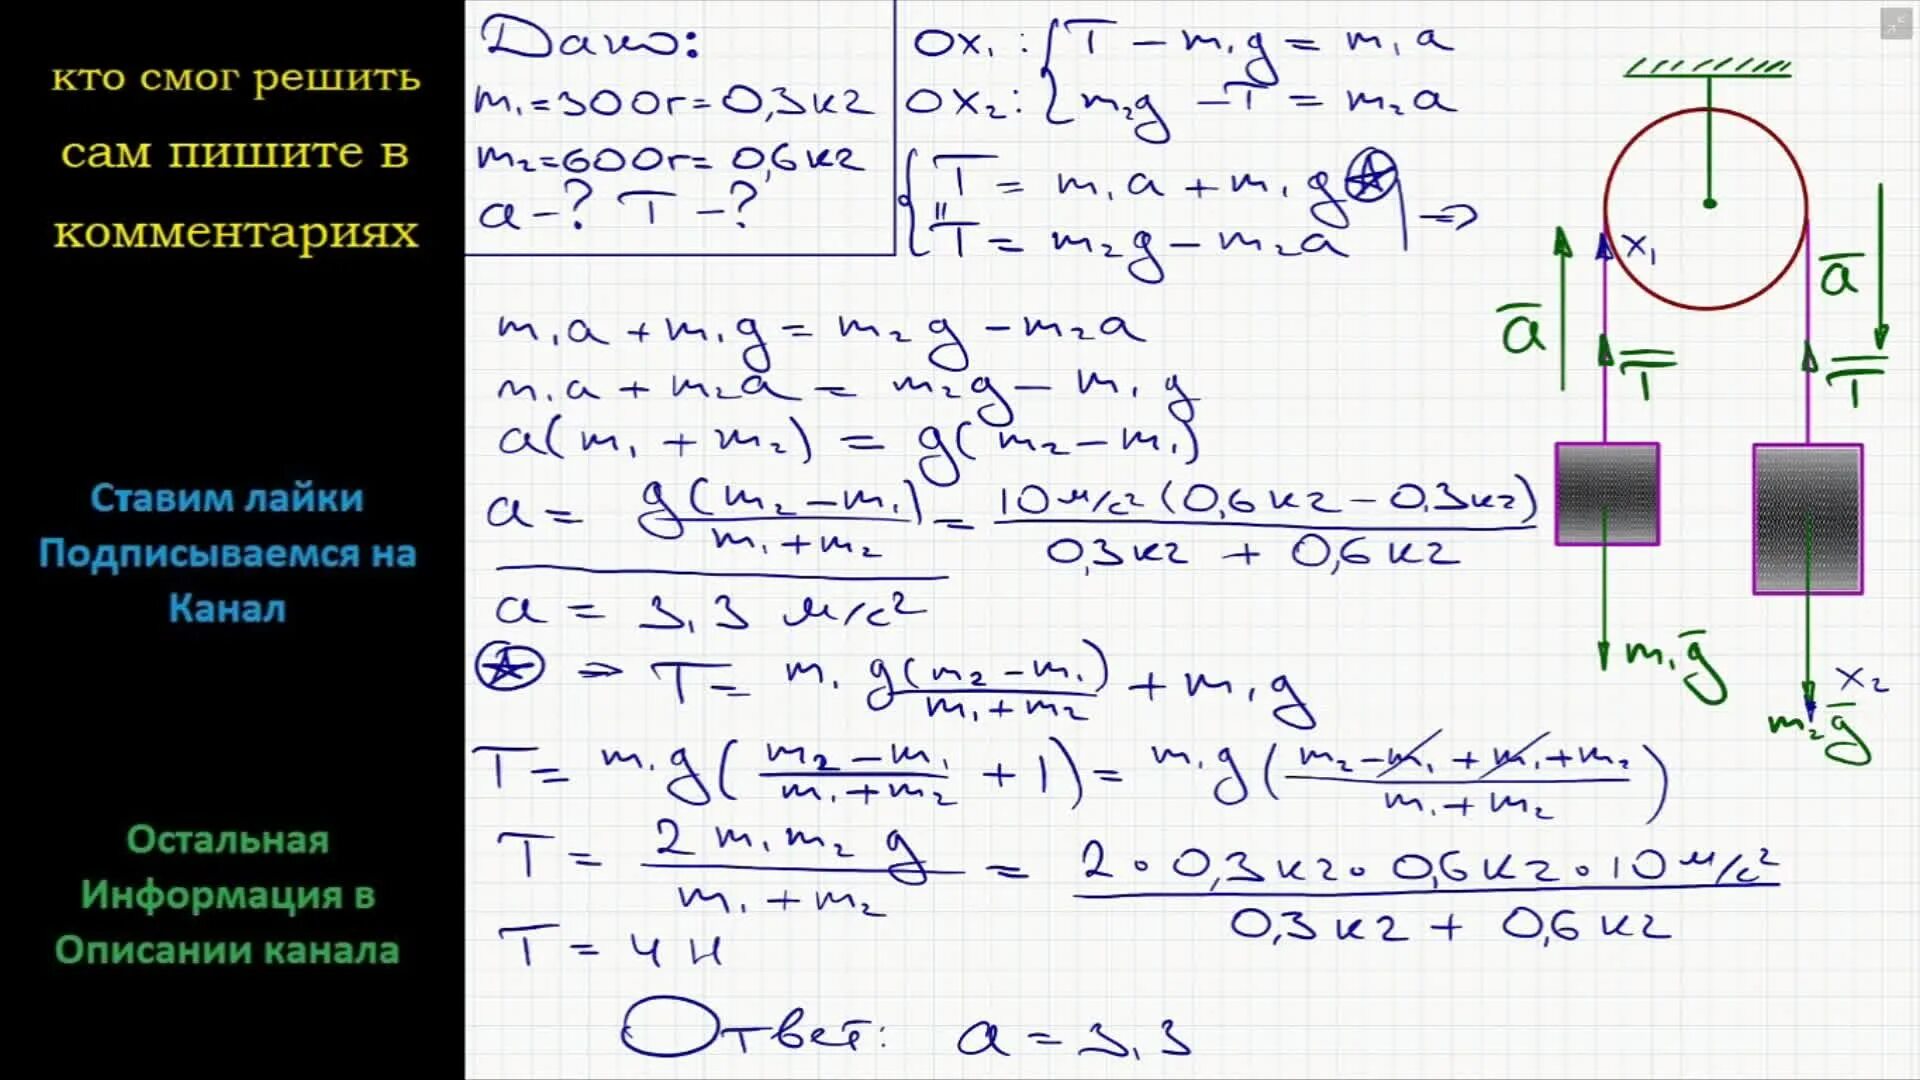 кто смог решить
сам пишите в
комментариях
Ставим лайки
Подписываемся на
Канал
Остальная
Информация в
Описании канала
Дано:
m₁=300г=0,3кг
m₂=600г=0,6кг
a-? T-?
Ox₁: { T - m₁g = m₁a
Ox₂: { m₂g - T = m₂a
{ T = m₁a + m₁g ⍟
"
T = m₂g - m₂a | ⇒
m₁a + m₁g = m₂g - m₂a
m₁a + m₂a = m₂g - m₁g
a(m₁ + m₂) = g(m₂ - m₁)
a = g(m₂ - m₁) / m₁ + m₂ = 10 м/с² (0,6 кг - 0,3 кг) / 0,3 кг + 0,6 кг
a = 3,3 м/с²
⍟ ⇒ T = m₁ g(m₂ - m₁) / m₁ + m₂ + m₁g
T = m₁g( m₂ - m₁ / m₁ + m₂ + 1) = m₁g( m₂ - m₁ + m₁ + m₂ / m₁ + m₂ )
T = 2 m₁ m₂ g / m₁ + m₂ = 2 · 0,3 кг · 0,6 кг · 10 м/с² / 0,3 кг + 0,6 кг
T = 4 Н
Ответ: a = 3,3
x₁
a̅
a̅
T̅
T̅
m₁g̅
x₂
m₂g̅